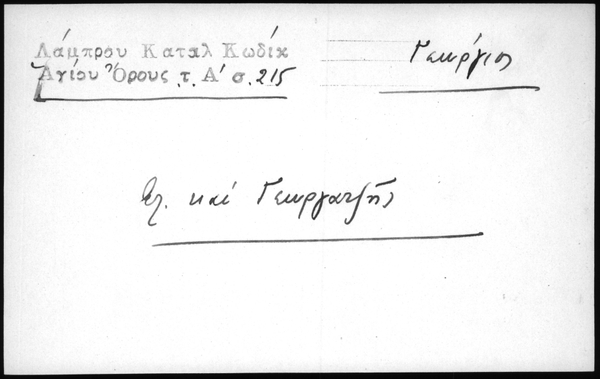 Λάμπρου Καταλ Κωδίκ
Ἁγίου Ὄρους τ. Α' σ. 215
Γεώργιος
βλ. καί Γεωργατζῆς